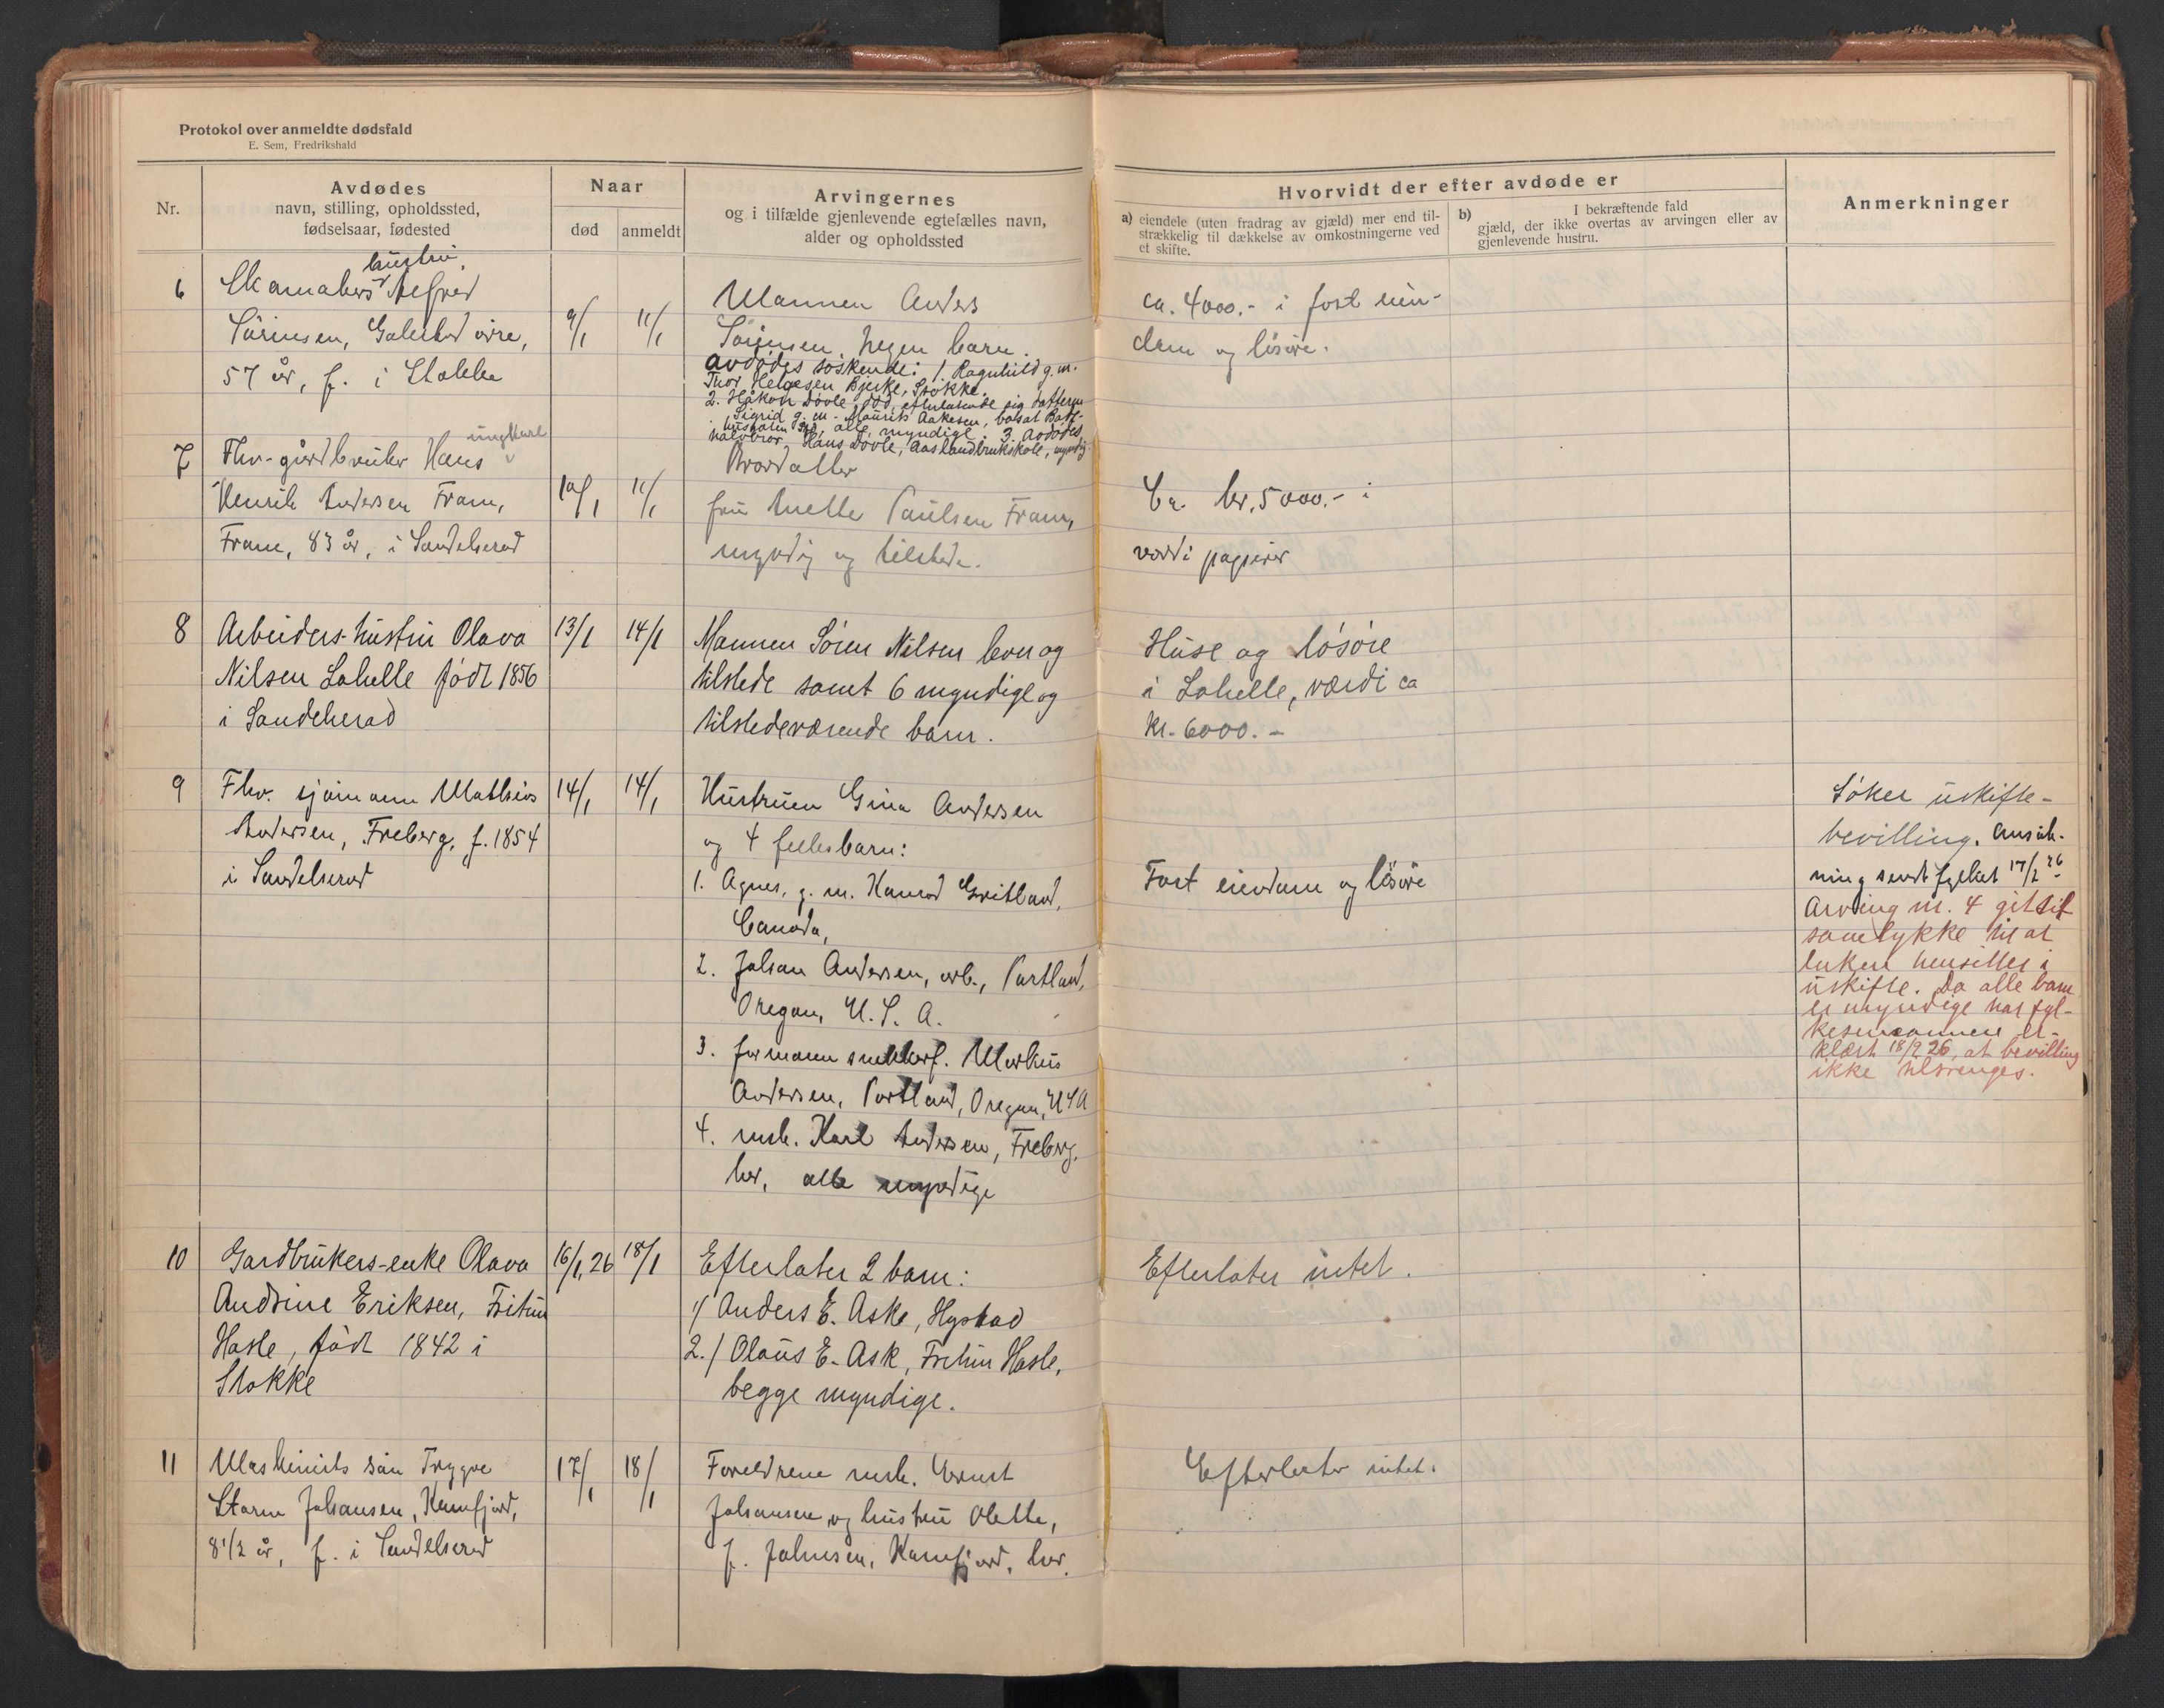 Protokol over anmeldte dødsfald
E. Sem, Fredrikshald
Nr.
Avdødes
navn, stilling, opholdssted,
fødselsaar, fødested
Naar
død
anmeldt
Arvingernes
og i tilfælde gjenlevende egtefælles navn,
alder og opholdssted
Hvorvidt der efter avdøde er
a) eiendele (uten fradrag av gjæld) mer end til-
strækkelig til dækkelse av omkostningerne ved
et skifte.
b) I bekræftende fald
gjæld, der ikke overtas av arvingen eller av
gjenlevende hustru.
Anmerkninger
6
hustru,
Skomakers
Sørensen,
57 år, f. i Stokke
9/1
11/1
Mannen Anders
Sørensen. Ingen barn.
avdødes søskende: 1 Ragnhild g. m.
Thor Helgesen Bjerke, Stokke.
2. Håkon Døvle, død, efterlatende sig datteren
Sigrid g. m. Maurits Aakesen, bosat
alle myndige. 3. Avdødes
halvbror Hans Døvle, Aas landbrukskole, myndig.
ca. 4000.- i fast eien-
dom og løsøre.
7
ungkarl
Fhv. gårdbruker Hans
Henrik Andersen Fram,
Fram, 83 år, i Sandeherad
10/1
11/1
Brordatter
fru Mette Paulsen Fram,
myndig og tilstede.
Ca. kr. 5000.- i
verdipapirer
8
Arbeiders-hustru Olava
Nilsen Lahelle født 1856
i Sandeherad
13/1
14/1
Mannen Søren Nilsen lever og
tilstede samt 6 myndige og
tilstedeværende barn.
Huse og løsøre
i Lahelle, værdi ca
kr. 6000.-
9
Fhv. sjømann Mathias
Andersen, Freberg, f. 1854
i Sandeherad
14/1
14/1
Hustruen Gina Andersen
og 4 fellesbarn:
1. Agnes, g. m. Konrad
Canada,
2. Johan Andersen, arb., Portland,
Oregon, U. S. A.
3. formann snekkerf. Markus
Andersen, Portland, Oregon, USA
4. mask. Karl Andersen, Freberg,
her, alle myndige
Fast eiendom og løsøre
Søker uskifte-
bevilling. Ansøk-
ning sendt fylket 17/2 26
Arving nr. 4 git sit
samtykke til at
enken hensitter i
uskifte. Da alle barn
er myndige har fyl-
kesmannen er-
klært 18/2 26, at bevilling
ikke tiltrenges.
10
Gardbrukers-enke Olava
Andrine Eriksen, Fritun
Hasle, født 1842 i
Stokke
16/1, 26
18/1
Efterlater 2 barn:
1/ Anders E. Aske, Hystad
2./ Olaus E. Ask, Fritun Hasle,
begge myndige.
Efterlater intet.
11
Maskinists søn Trygve
Storm Johansen, Kamfjord,
8 1/2 år, f. i Sandeherad
17/1
18/1
Foreldrene mask. Ernst
Johansen og hustru Olette,
f. Johnsen, Kamfjord, her.
Efterlater intet.